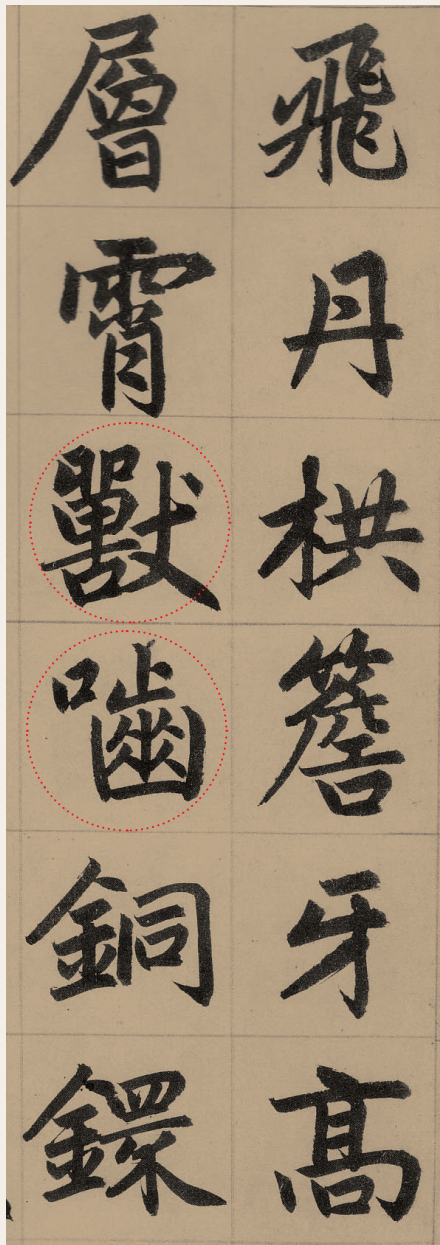 飛丹栱簷牙高
層霄獸嚙銅鐶